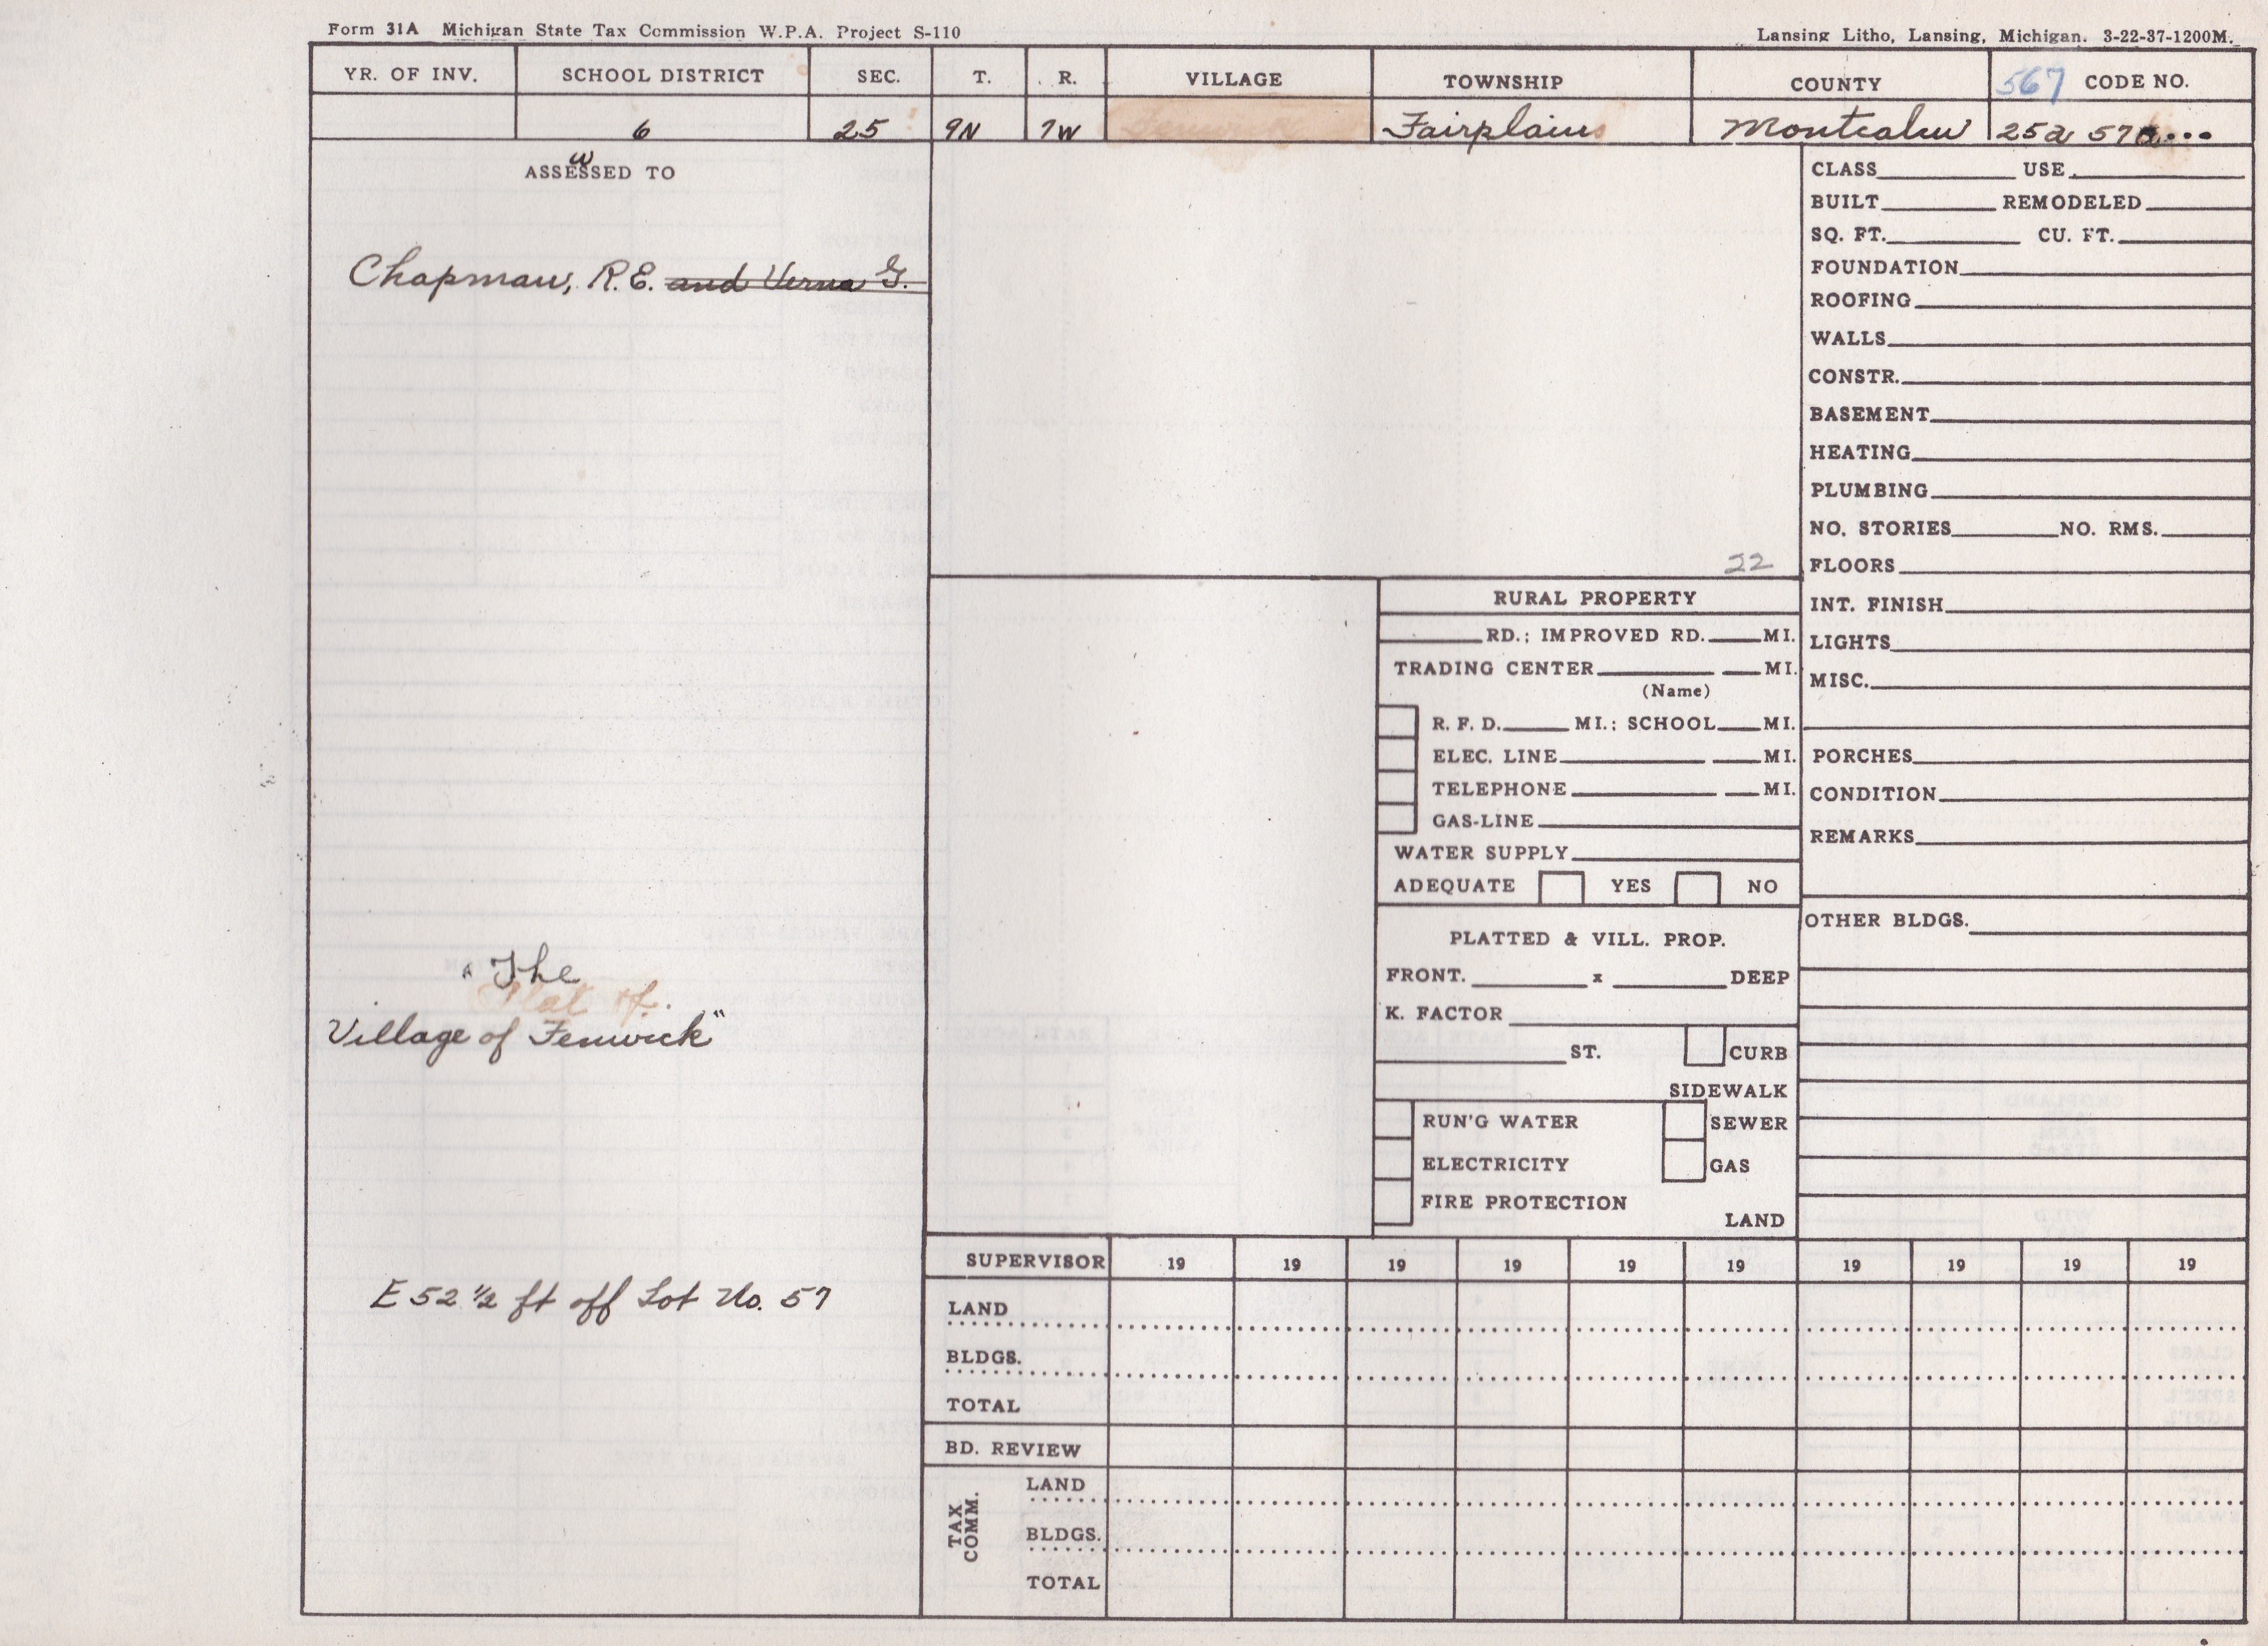 Form 31A Michigan State Tax Commission W.P.A. Project S-110
Lansing Litho, Lansing, Michigan. 3-22-37-1200M.
YR. OF INV. SCHOOL DISTRICT SEC. T. R. VILLAGE TOWNSHIP COUNTY 567 CODE NO.
6 25 9N 7W Fenwick Fairplains Montcalm 25a 57
W
ASSESSED TO
Chapman, R.E. and Verna G.
"The
Plat of
Village of Fenwick"
E 52 1/2 ft off Lot No. 57
22
RURAL PROPERTY
RD.; IMPROVED RD. MI.
TRADING CENTER MI.
(Name)
R. F. D. MI.; SCHOOL MI.
ELEC. LINE MI.
TELEPHONE MI.
GAS-LINE
WATER SUPPLY
ADEQUATE YES NO
PLATTED & VILL. PROP.
FRONT. x DEEP
K. FACTOR
ST. CURB
SIDEWALK
RUN'G WATER SEWER
ELECTRICITY GAS
FIRE PROTECTION
LAND
CLASS USE
BUILT REMODELED
SQ. FT. CU. FT.
FOUNDATION
ROOFING
WALLS
CONSTR.
BASEMENT
HEATING
PLUMBING
NO. STORIES NO. RMS.
FLOORS
INT. FINISH
LIGHTS
MISC.
PORCHES
CONDITION
REMARKS
OTHER BLDGS.
SUPERVISOR 19 19 19 19 19 19 19 19 19 19
LAND
BLDGS.
TOTAL
BD. REVIEW
TAX COMM.
LAND
BLDGS.
TOTAL